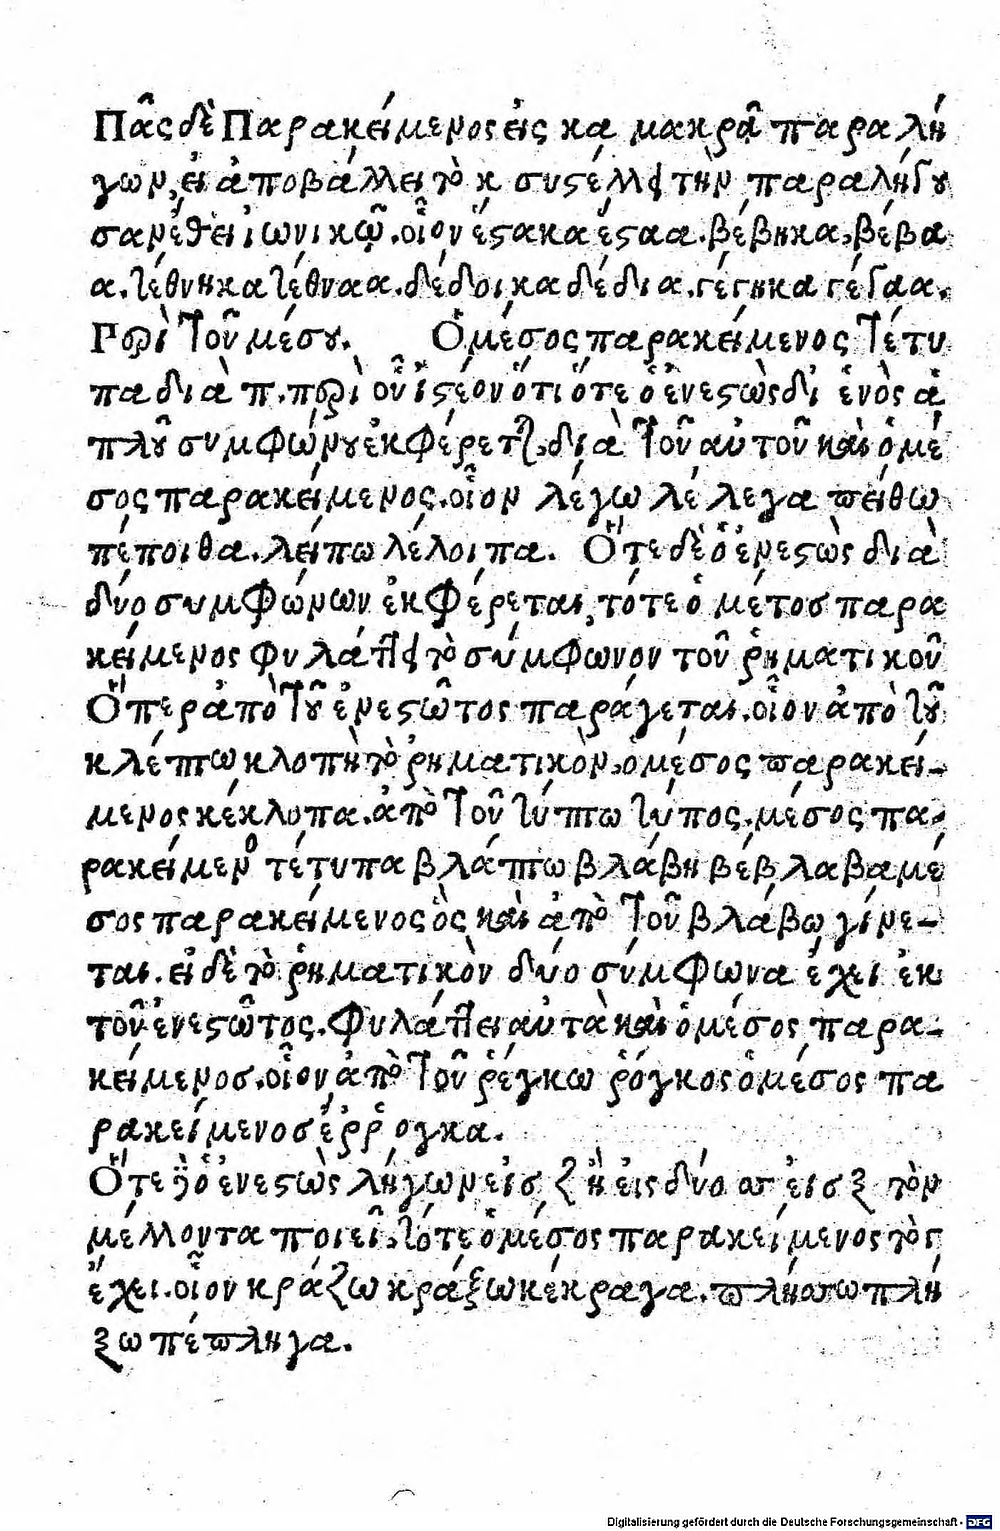 Πᾶς δὲ Παρακείμενος εἰς κα μακρᾷ παραλή
γων, εἰ ἀποβάλλει τὸ κ συστέλλει τὴν παραλήγου
σαν ἔθει ἰωνικῷ. οἷον ἕστακα ἕσταα. βέβηκα, βέβα
α. τέθνηκα τέθναα. δέδοικα δέδια. γέγηκα γέγαα.
Περὶ τοῦ μέσου. Ὁ μέσος παρακείμενος τέτυ
πα διὰ π. περὶ οὗ ἰστέον ὅτι ὅτε ὁ ἐνεστὼς δι ἑνὸς ἁ
πλοῦ συμφώνου ἐκφέρεται, διὰ τοῦ αὐτοῦ καὶ ὁ μέ
σος παρακείμενος. οἷον λέγω λέλεγα πείθω
πέποιθα. λείπω λέλοιπα. Ὅτε δὲ ὁ ἐνεστὼς διὰ
δύο συμφώνων ἐκφέρεται, τότε ὁ μέτοσ παρα
κείμενος φυλάττει τὸ σύμφωνον τοῦ ῥηματικοῦ
Ὅπερ ἀπὸ τοῦ ἐνεστῶτος παράγεται. οἷον ἀπὸ τοῦ
κλέπτω κλοπὴ τὸ ῥηματικὸν, ὁ μέσος παρακεί-
μενος κέκλοπα. ἀπὸ τοῦ τύπτω τύπος. μέσος πα-
ρακείμενος τέτυπα βλάπτω βλάβη βέβλαβα μέ
σος παρακείμενος ὃς καὶ ἀπὸ τοῦ βλάβω γίνε-
ται. εἰ δὲ τὸ ῥηματικὸν δύο σύμφωνα ἔχει ἐκ
τοῦ ἐνεστῶτος. Φυλάττει αὐτὰ καὶ ὁ μέσος παρα-
κείμενοσ. οἷον ἀπὸ τοῦ ῥέγκω ῥόγκος ὁ μέσος πα
ρακείμενοσ ἔῤῥογκα.
Ὅτε δὲ ὁ ἐνεστὼς λήγων εἰσ ζ ἢ εἰς δύο σσ εἰσ ξ τὸν
μέλλοντα ποιεῖ, τότε ὁ μέσος παρακείμενος τὸ γ
ἔχει. οἷον κράζω κράξω κέκραγα. πλήσσω πλή
ξω πέπληγα.
Digitalisierung gefördert durch die Deutsche Forschungsgemeinschaft - DFG